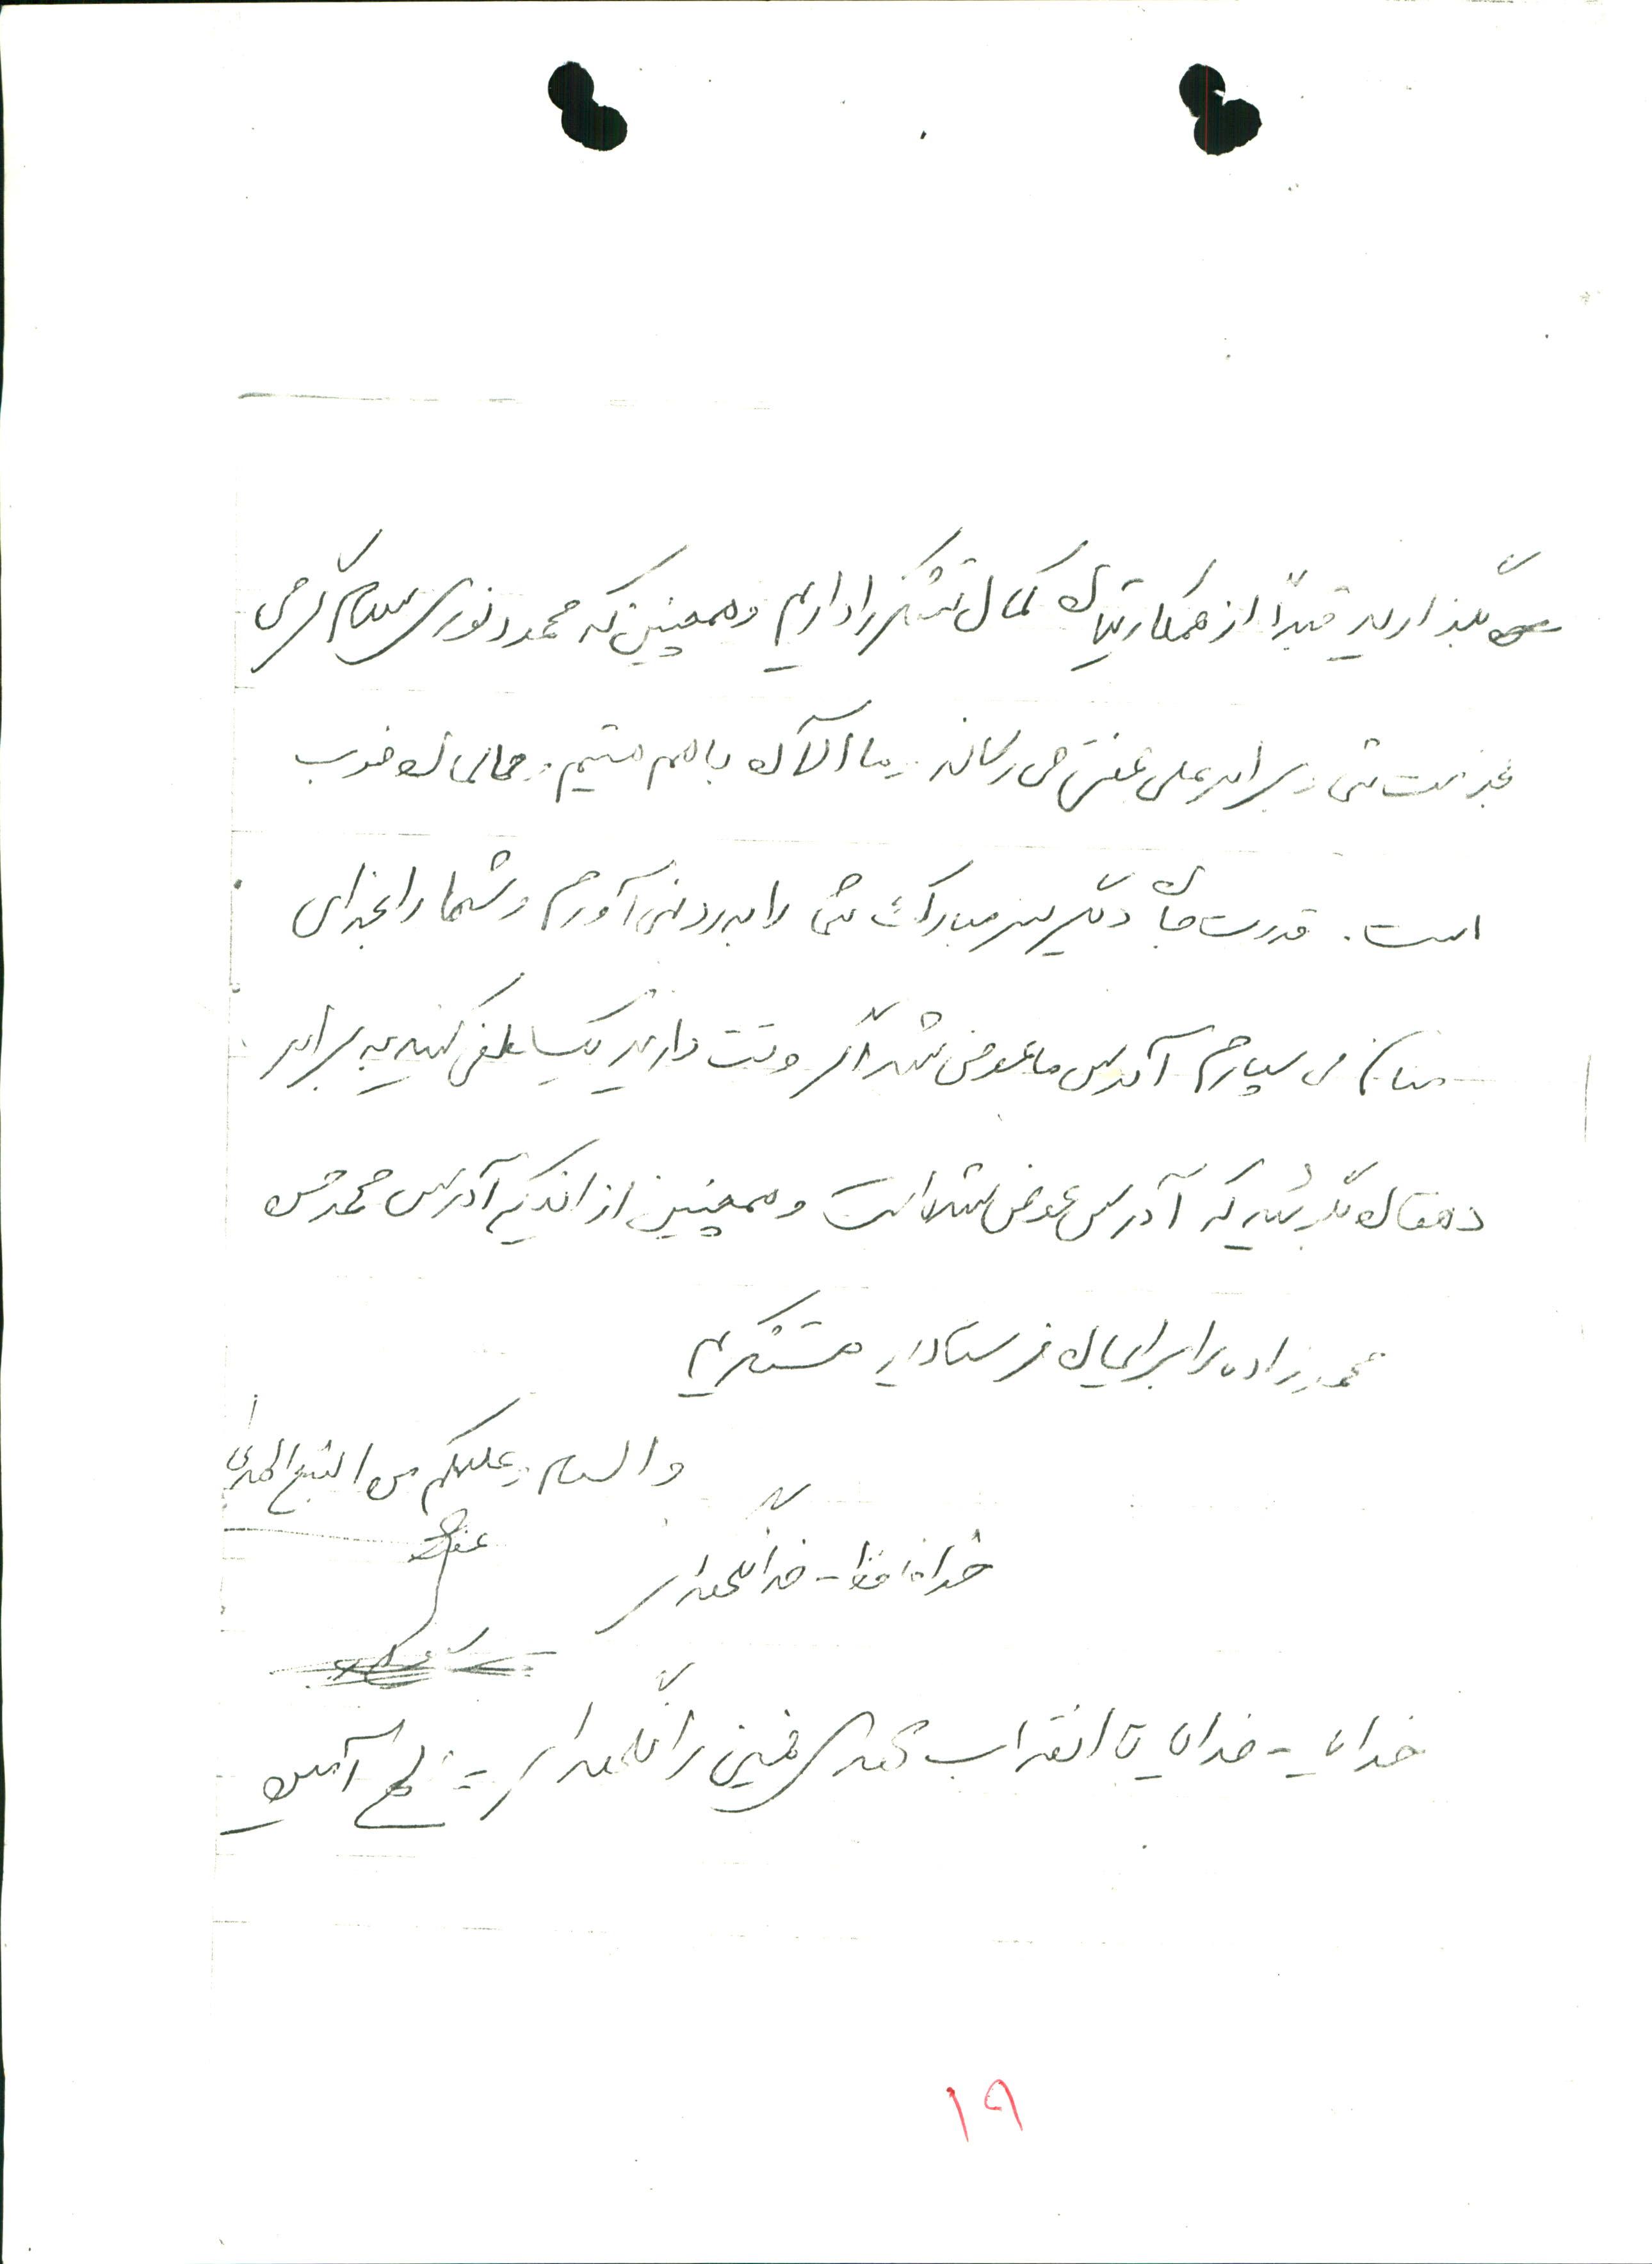 بگذارید قبلاً از همکاریتان کمال تشکر را داریم و همچنین که محمود نوری سلام گرمی
بخدمت شما و برادر علی می‌رساند و ما الآن با هم هستیم و حالمان خوب
است. قدرت جان دیگر سر مبارک شما را بدرد نمی‌آورم و شما را بخدای
منان می سپارم آدرس ما عوض شد اگر وقت دارید یک تلفن کنید به برادر
دهقان بگوئید که آدرس عوض شده است و همچنین از اینکه آدرس محمد حسن
محمدزاده را برایمان فرستادید متشکریم
والسلام و علیکم من التبع الهدی
خداحافظ - خدانگهدار
خدایا - خدایا تا انقلاب مهدی خمینی را نگهدار - آمین
۱۹